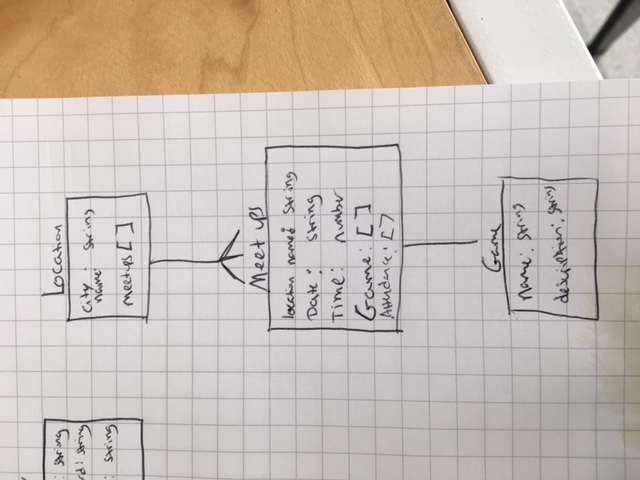 : string
rd: string
: string
Location
City name: string
meetups [ ]
Meetups
location name: string
Date: string
Time: number
Game: [ ]
Attendence: [ ]
Game
name: string
description: string